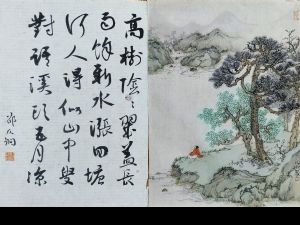 高樹陰々翠蓋長
雨餘新水漲回塘
何人得似山中叟
對語溪頭五月涼
邵仄炯